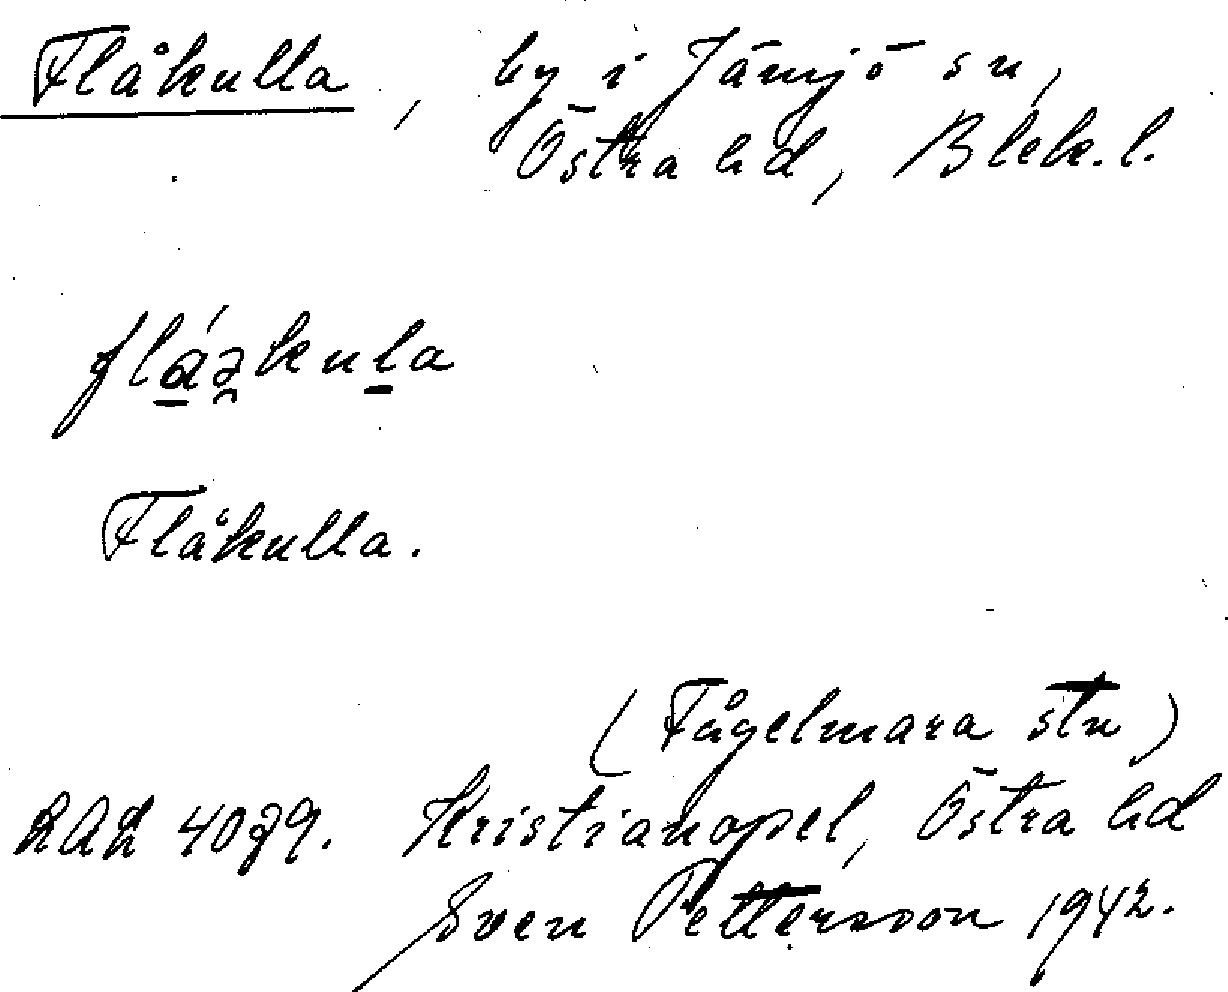 Flåkulla, by i Jämjö sn,
Östra hd, Blek.l.
flá̱ə̯kuḻa
Flåkulla.
(Fågelmara stn)
Kristianopel, Östra hd
Sven Pettersson 1942.